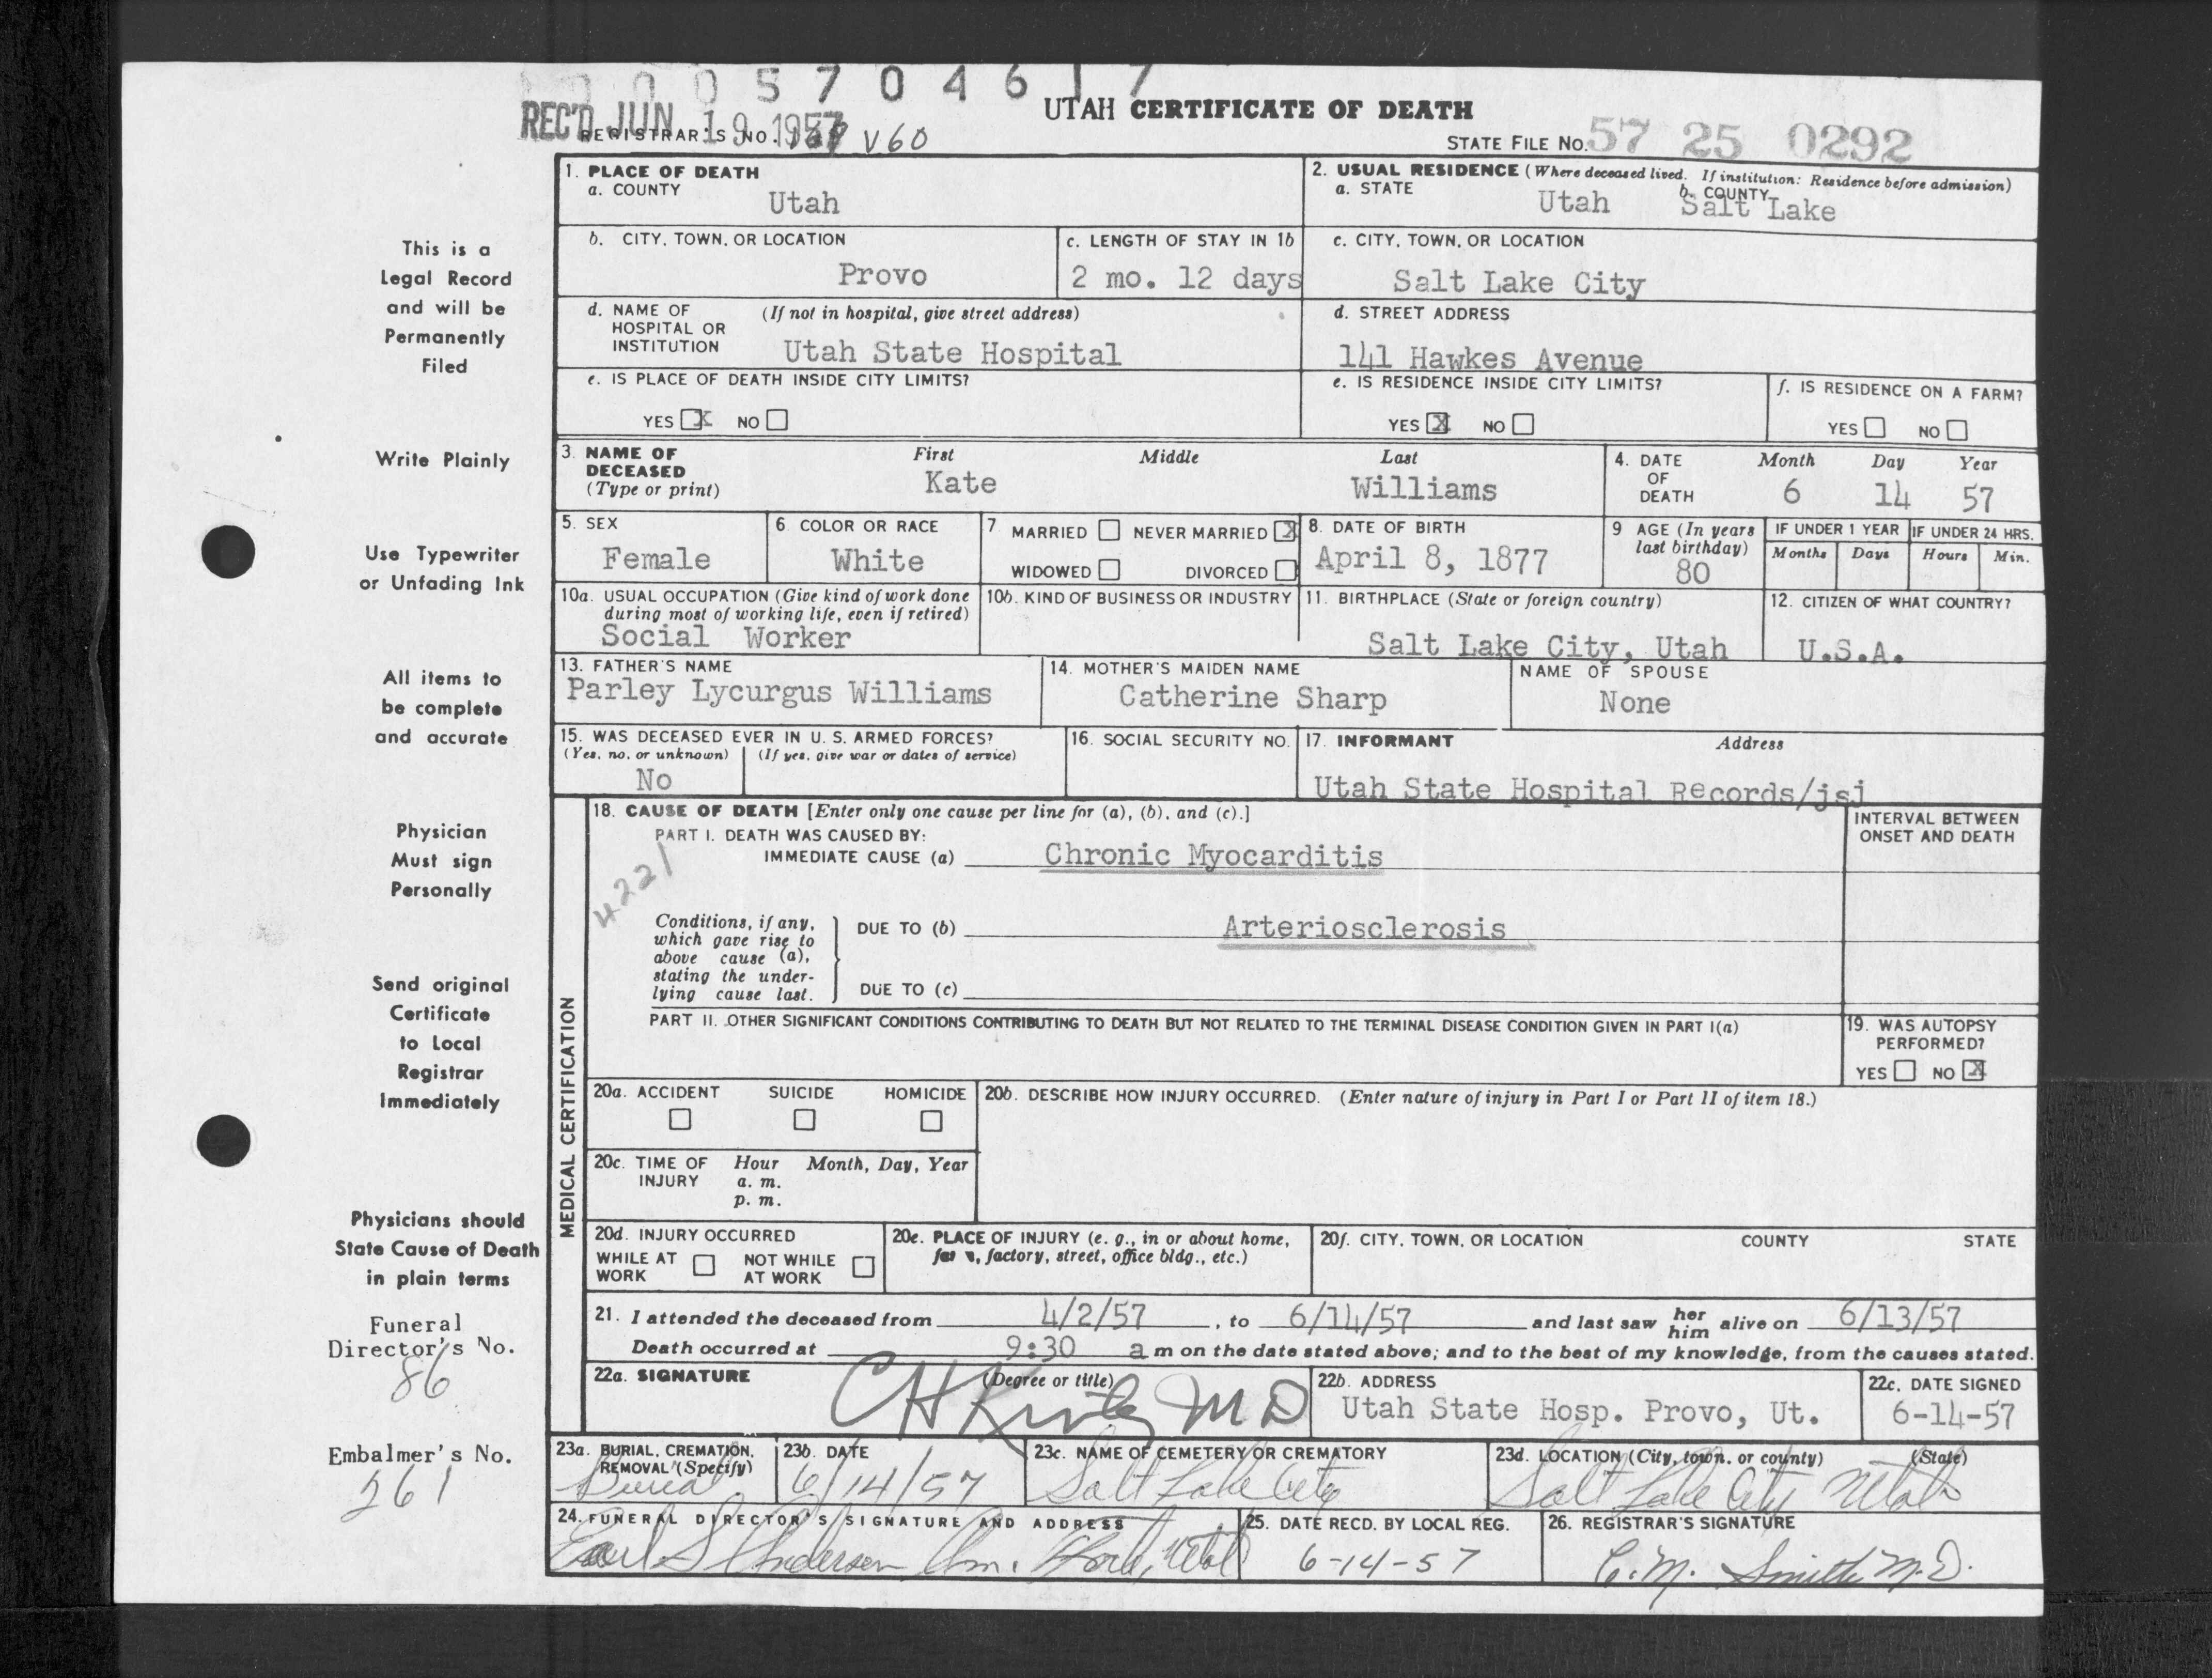 0 0 0 5 7 0 4 6 1 7
REC'D JUN 19 1957
UTAH CERTIFICATE OF DEATH
REGISTRAR'S NO. V60
STATE FILE NO. 57 25 0292
1. PLACE OF DEATH
a. COUNTY
Utah
2. USUAL RESIDENCE (Where deceased lived. If institution: Residence before admission)
a. STATE
Utah
b. COUNTY
Salt Lake
b. CITY, TOWN, OR LOCATION
Provo
c. LENGTH OF STAY IN 1b
2 mo. 12 days
c. CITY, TOWN, OR LOCATION
Salt Lake City
d. NAME OF HOSPITAL OR INSTITUTION
(If not in hospital, give street address)
Utah State Hospital
d. STREET ADDRESS
141 Hawkes Avenue
e. IS PLACE OF DEATH INSIDE CITY LIMITS?
YES X NO
e. IS RESIDENCE INSIDE CITY LIMITS?
YES X NO
f. IS RESIDENCE ON A FARM?
YES NO
3. NAME OF DECEASED (Type or print)
First Middle Last
Kate Williams
4. DATE OF DEATH
Month Day Year
6 14 57
5. SEX
Female
6 COLOR OR RACE
White
7 MARRIED NEVER MARRIED X
WIDOWED DIVORCED
8. DATE OF BIRTH
April 8, 1877
9 AGE (In years last birthday)
80
IF UNDER 1 YEAR
Months Days
IF UNDER 24 HRS.
Hours Min.
10a. USUAL OCCUPATION (Give kind of work done during most of working life, even if retired)
Social Worker
10b. KIND OF BUSINESS OR INDUSTRY
11. BIRTHPLACE (State or foreign country)
Salt Lake City, Utah
12. CITIZEN OF WHAT COUNTRY?
U.S.A.
13. FATHER'S NAME
Parley Lycurgus Williams
14. MOTHER'S MAIDEN NAME
Catherine Sharp
NAME OF SPOUSE
None
15. WAS DECEASED EVER IN U. S. ARMED FORCES?
(Yes, no, or unknown) (If yes, give war or dates of service)
No
16. SOCIAL SECURITY NO.
17. INFORMANT Address
Utah State Hospital Records/jsj
MEDICAL CERTIFICATION
18. CAUSE OF DEATH [Enter only one cause per line for (a), (b), and (c).]
PART I. DEATH WAS CAUSED BY:
IMMEDIATE CAUSE (a) Chronic Myocarditis
4221
INTERVAL BETWEEN ONSET AND DEATH
Conditions, if any, which gave rise to above cause (a), stating the underlying cause last.
DUE TO (b) Arteriosclerosis
DUE TO (c)
PART II. OTHER SIGNIFICANT CONDITIONS CONTRIBUTING TO DEATH BUT NOT RELATED TO THE TERMINAL DISEASE CONDITION GIVEN IN PART I(a)
19. WAS AUTOPSY PERFORMED?
YES NO X
20a. ACCIDENT SUICIDE HOMICIDE
20b. DESCRIBE HOW INJURY OCCURRED. (Enter nature of injury in Part I or Part II of item 18.)
20c. TIME OF INJURY
Hour Month, Day, Year
a. m.
p. m.
20d. INJURY OCCURRED
WHILE AT WORK
NOT WHILE AT WORK
20e. PLACE OF INJURY (e. g., in or about home, factory, street, office bldg., etc.)
20f. CITY, TOWN, OR LOCATION COUNTY STATE
21. I attended the deceased from 4/2/57, to 6/14/57 and last saw her him alive on 6/13/57
Death occurred at 9:30 a m on the date stated above; and to the best of my knowledge, from the causes stated.
22a. SIGNATURE (Degree or title)
M D
22b. ADDRESS
Utah State Hosp. Provo, Ut.
22c. DATE SIGNED
6-14-57
23a. BURIAL, CREMATION, REMOVAL (Specify)
Burial
23b. DATE
6/14/57
23c. NAME OF CEMETERY OR CREMATORY
Salt Lake City
23d. LOCATION (City, town, or county) (State)
Salt Lake City Utah
24. FUNERAL DIRECTOR'S SIGNATURE AND ADDRESS
Earl S Anderson
25. DATE RECD. BY LOCAL REG.
6-14-57
26. REGISTRAR'S SIGNATURE
C. M. Smith M.D.
This is a
Legal Record
and will be
Permanently
Filed
Write Plainly
Use Typewriter
or Unfading Ink
All items to
be complete
and accurate
Physician
Must sign
Personally
Send original
Certificate
to Local
Registrar
Immediately
Physicians should
State Cause of Death
in plain terms
Funeral
Director's No.
86
Embalmer's No.
261